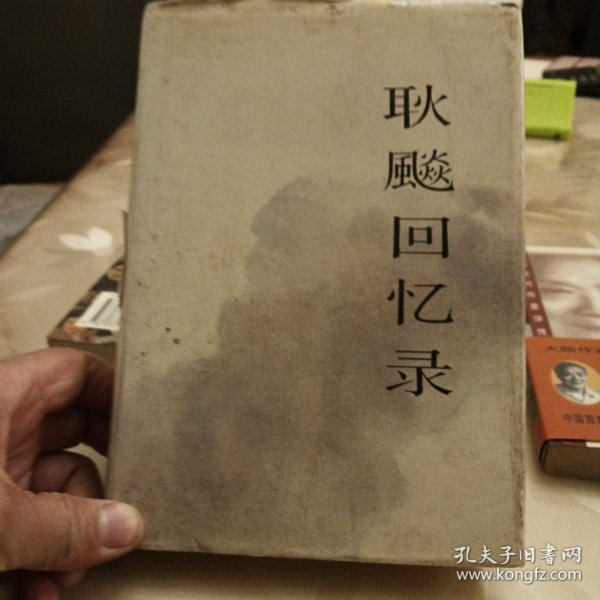 耿飚回忆录
中国首
孔夫子旧書网
www.kongfz.com